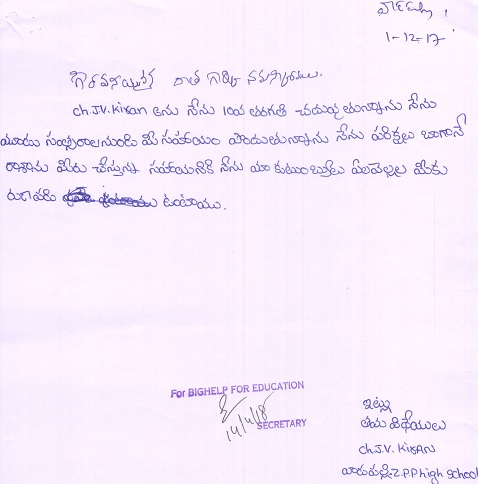 1-12-17
గౌరవనీయులైన దాత గారికి నమస్కారములు.
ch.J.V.Kiran అను నేను 10వ తరగతి చదువు తున్నాను నేను
మూడు సంవత్సరాలనుండి మీ సహాయం పొందుతున్నాను నేను పరిక్షలు బాగానే
రాశాను మీరు చేస్తున్న సహాయనికి నేను మా కుటుంబ్బులు ఏలవెల్లల మీకు
రుణపడి ఉంటాము.
For BIGHELP FOR EDUCATION
14/4/18
SECRETARY
ఇట్లు
తమ విధేయులు
ch.J.V. KIRAN
Z.P.P high School